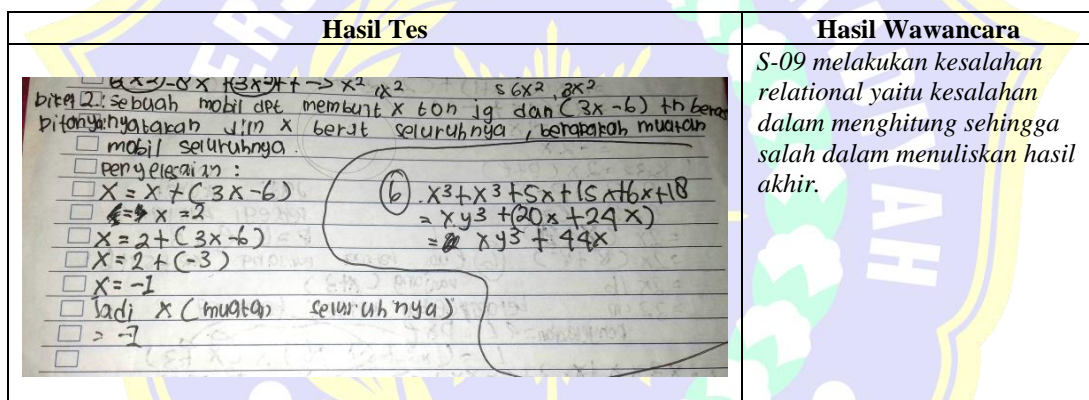 Hasil Tes
Hasil Wawancara
-8x +(3x²)+ → x² , x² 6x² , 8x²
diket 2. Sebuah mobil dpt membunt x ton jg dan (3x-6) tn beras
Ditanya: nyatakan x berat seluruhnya , berapakah muatan
mobil seluruhnya
Penyelesaian :
X = x + (3x-6)
x = 2
X = 2 + (3x-6)
X = 2 + (-3)
X = -1
Jadi x (muatan seluruhnya)
= -1
6. x³+x³+5x+15x+6x+18
= xy³ +(20x+24x)
= xy³ + 44x
S-09 melakukan kesalahan
relational yaitu kesalahan
dalam menghitung sehingga
salah dalam menuliskan hasil
akhir.